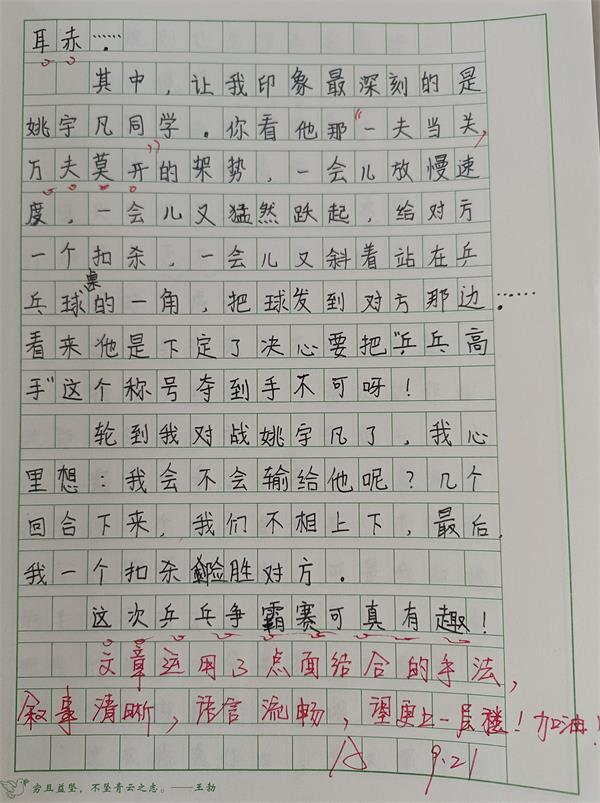 耳赤……
其中，让我印象最深刻的是
姚宇凡同学。你看他那“一夫当关，
万夫莫开”的架势，一会儿放慢速
度，一会儿又猛然跃起，给对方
一个扣杀，一会儿又斜着站在乒
乓球桌的一角，把球发到对方那边……
看来他是下定了决心要把“乒乓高
手”这个称号夺到手不可呀！
轮到我对战姚宇凡了，我心
里想：我会不会输给他呢？几个
回合下来，我们不相上下，最后，
我一个扣杀险胜对方。
这次乒乓争霸赛可真有趣！
文章运用了点面结合的手法，
叙事清晰，语言流畅，望更上一层楼！加油！
9.21
穷且益坚，不坠青云之志。——王勃